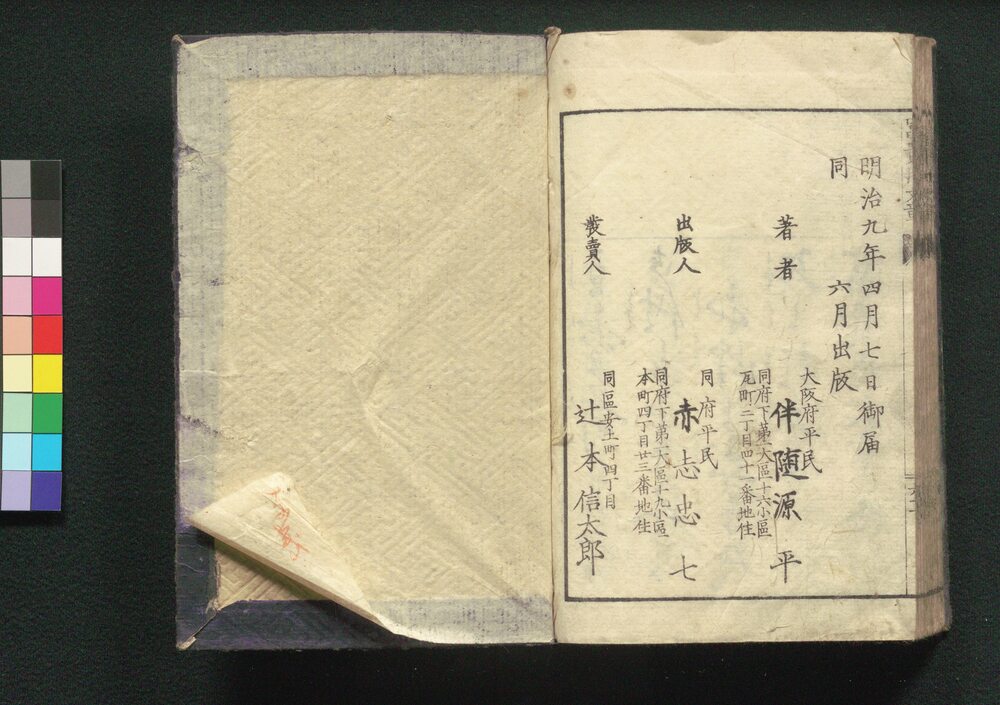 明治九年四月七日御届
同　六月出版
大阪府平民
著者　伴随源平
同府下第一大區十六小區
瓦町二丁目四十一番地住
同府平民
出版人　赤志忠七
同府下第一大區十九小區
本町四丁目廿三番地住
同區安土町四丁目
發賣人　辻本信太郎